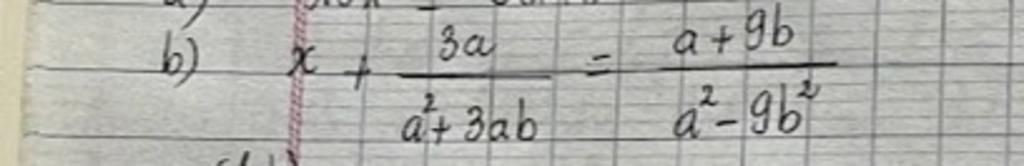 b) x + 3a / (a² + 3ab) = (a + 9b) / (a² - 9b²)